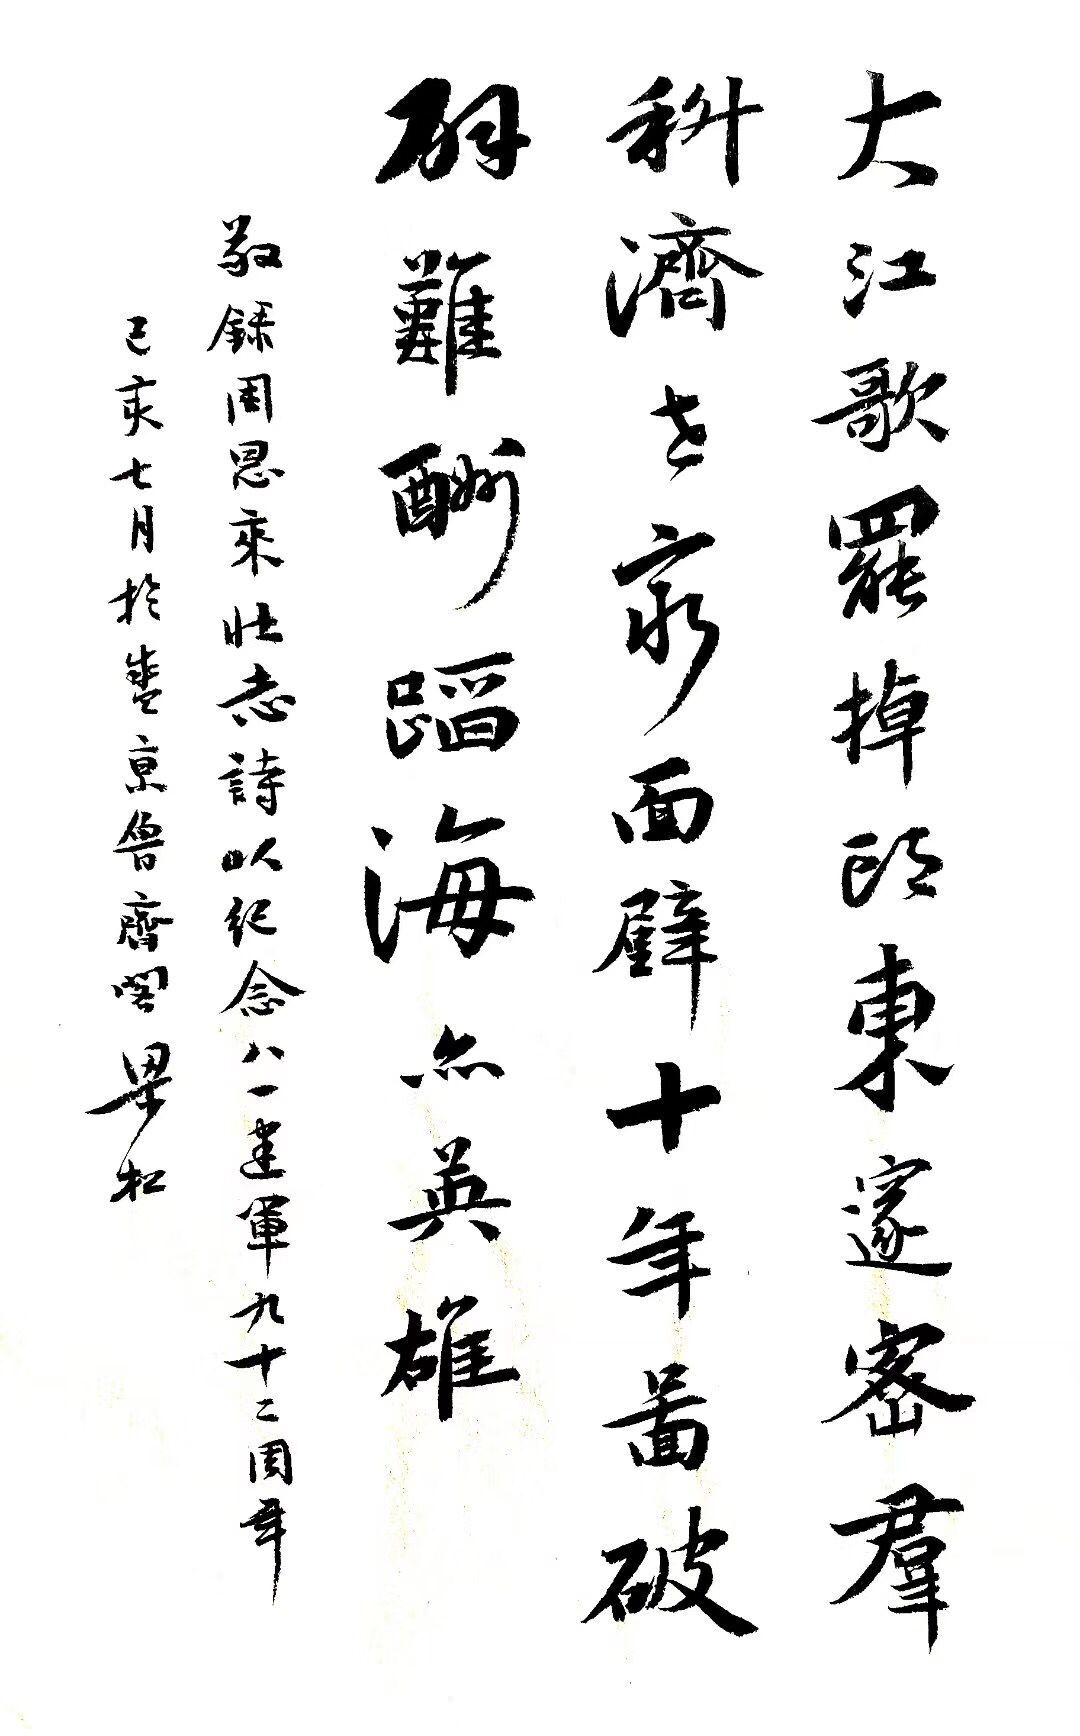 大江歌罷掉頭東邃密羣
科濟世窮面壁十年圖破
壁難酬蹈海亦英雄
敬録周恩來壯志詩以紀念八一建軍九十二周年
己亥七月於盛京魯齊閣梁松